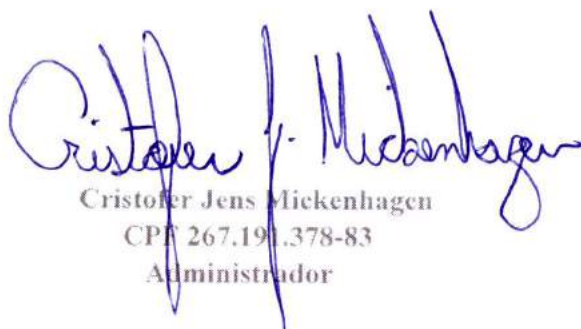 Cristofer J. Mickenhagen
Cristofer Jens Mickenhagen
CPF 267.191.378-83
Administrador